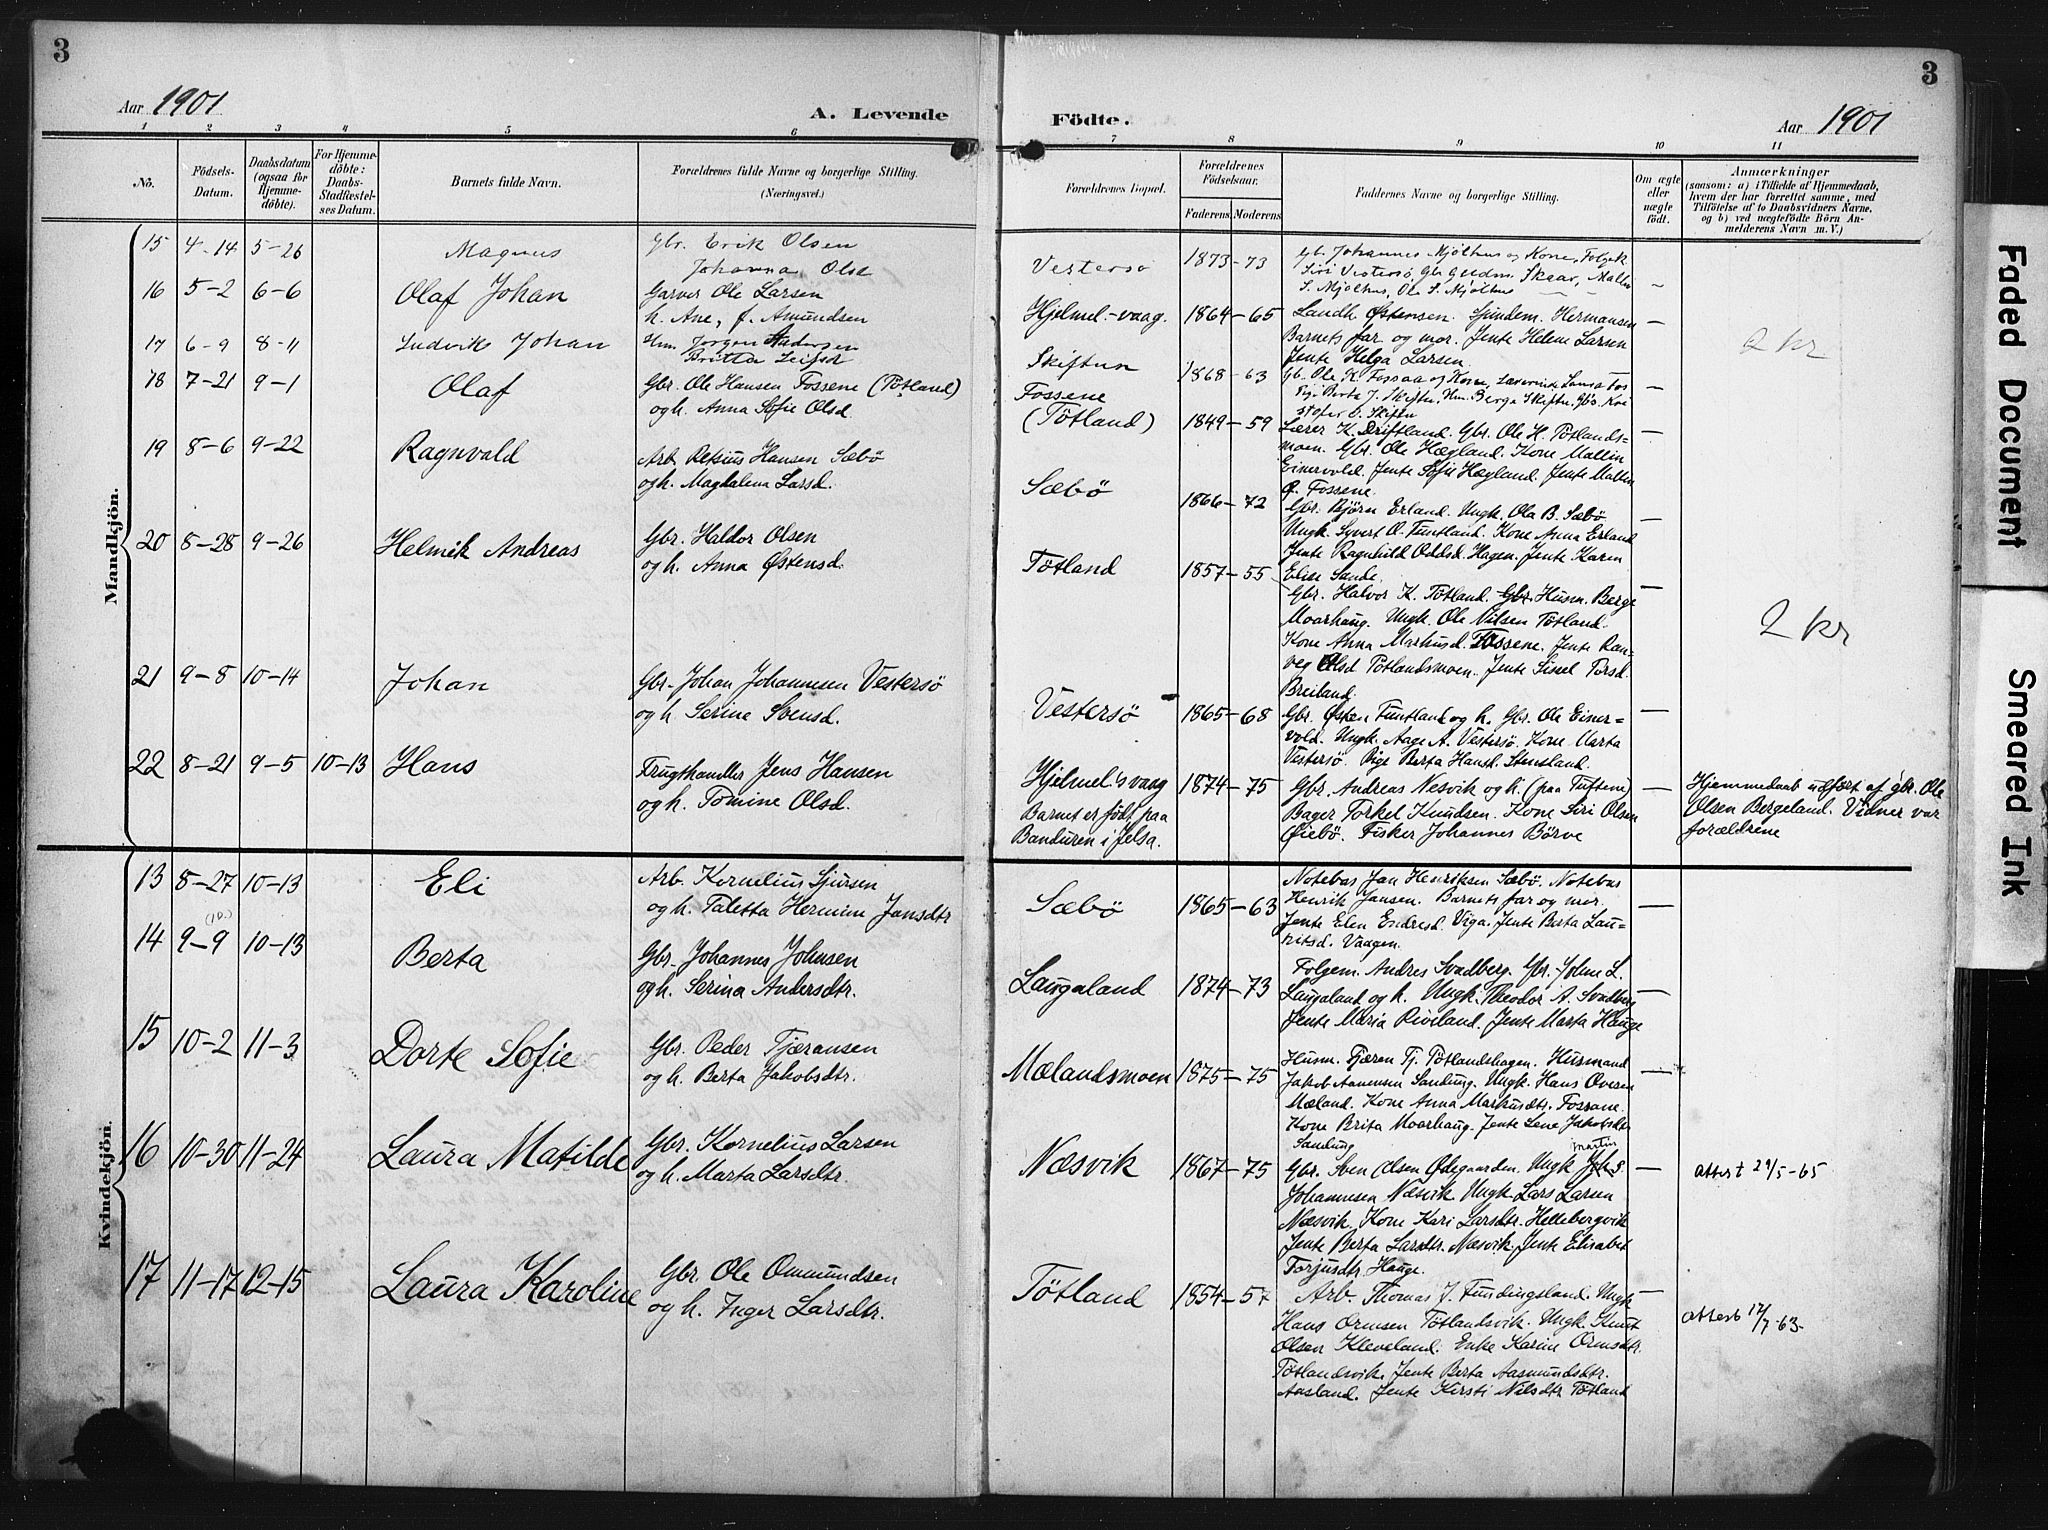 3
Aar 1901
A. Levende
1 2 3 4 5 6
No.
Födsels-
Datum.
Daabsdatum
(ogsaa for
Hjemme-
döbte).
For Hjemme-
döbte:
Daabs-
Stadfæstel-
ses Datum.
Barnets fulde Navn.
Forældrenes fulde Navne og borgerlige Stilling.
(Næringsvei.)
Mandkjön.
15 4-14 5-26 Magnus Gbr. Erik Olsen
Johanna Olsd
16 5-2 6-6 Olaf Johan Garver Ole Larsen
h. Ane, f. Amundsen
17 6-9 8-11 Ludvik Johan Hm. Jörgen Andersen
Britta Leifsd
18 7-21 9-1 Olaf Gbr. Ole Hansen Fossene (Tötland)
og h. Anna Sofie Olsd.
19 8-6 9-22 Ragnvald Arb. Hansen Sæbö
og h. Magdalena Larsd.
20 8-28 9-26 Helmik Andreas Gbr. Haldor Olsen
og h. Anna Østensd.
21 9-8 10-14 Johan Gbr. Johan Johannesen Vestersö
og h. Serine Svensd.
22 8-21 9-5 10-13 Hans Frugthandler Jens Hansen
og h. Tomine Olsd.
Kvindekjön.
13 8-27 10-13 Eli Arb. Kornelius Sjursen
og h. Taletta Hermine Jansdtr
14 9-9 (10.) 10-13 Berta Gbr. Johannes Johnsen
og h. Serina Andersdtr.
15 10-2 11-3 Dorte Sofie Gbr. Peder Tjæransen
og h. Berta Jakobsdtr.
16 10-30 11-24 Laura Matilde Gbr. Kornelius Larsen
og h. Marta Larsdtr.
17 11-17 12-15 Laura Karoline Gbr. Ole Ommundsen
og h. Inger Larsdtr.
3
Födte.
Aar 1901
7 8 9 10 11
Forældrenes Bopæl.
Forældrenes
Födselsaar.
Faderens Moderens
Faddernes Navne og borgerlige Stilling.
Om ægte
eller
uægte
födt.
Anmærkninger
(saasom: a) i Tilfælde af Hjemmedaab,
hvem der har forrettet samme, med
Tilföielse af to Daabsvidners Navne,
og b) ved uægtefödte Börn An-
melderens Navn m. V.)
Vestersö 1873-73 Gb. Johannes Mjölhus og Kone,
Siri Vestersö, Gbr Gudm. Skaar, Mallin
S. Mjölhus, Ole S. Mjölhus —
Hjelmel.-vaag. 1864-65 Landh. Østensen. Hermansen —
Barnets far og mor. Jente Helene Larsen
Jente Helga Larsen. 2 kr
Skiftun 1868-63 Gb. Ole K. Fossaa og Kone, —
Pige Berta J. Skiftun, Hm. Berge Skiftun, Kri
stofer Skiftun
Fossene
(Tötland) 1849-59 Lærer K. Driftland. Gbr. Ole H. Tötlands- —
moen. Gbr. Ole Hægland. Kone Mallin
Einervold. Jente Sofie Hægland. Jente Mallin
O. Fossene.
Sæbö 1866-72 Gbr. Björn Erland. Ungk. Ola B. Sæbö —
Ungk. Syvert O. Funtland. Kone Anna Erland
Jente Ragnhild Oddsd. Hagen. Jente Karen
Elise Sande.
Tötland 1857-55 —
Gbr. Halvor K. Tötland. Gbr. Husm. Berge
Moarhaug. Ungk. Ole Nilsen Tötland.
Kone Anna Markusd. Fossene. Jente Ran-
veg Olsd Tötlandsmoen. Jente Sissel Torsd.
Breiland. 2 kr
Vestersö 1865-68 Gbr. Østen Funtland og h. Gbr. Ole Einer- —
vold. Ungk. Aage A. Vestersö. Kone Marta
Vestersö. Pige Berta Stensland.
Hjelmel.svaag 1874-75 Gbr. Andreas Nesvik og h. (paa Tuftene) —
Barnet er födt paa
Banduren i Jelsa.
Bager Torkel Knudsen. Kone Siri Olsen
Øiebö. Fisker Johannes Börve
Hjemmedaab udfört af gbr. Ole
Olsen Bergeland. Vidner var
forældrene
Sæbö 1865-63 Notebas Jan Henriksen Sæbö. Notebas
Henrik Jansen. Barnets far og mor. —
Jente Elen Endresd. Viga. Jente Berta Lau-
ritsd. Vaagen.
Laugaland 1874-73 Folgem. Andres Svadberg. Gbr. Johne L.
Laugaland og h. Ungk. Theodor A. Svadberg —
Jente Maria Riveland. Jente Marta Hauge
Mælandsmoen 1875-75 Husm. Tjæren Tj. Tötlandshagen. Husmand
Jakob Aamensen Sandung. Ungk. Hans Oversen —
Mæland. Kone Anna Markusdtr. Fossane.
Kone Brita Moarhaug. Jente Lene Jakobsdtr
Sandung
Næsvik 1867-75 Gbr. Sven Olsen Ødegaarden. Ungk Martin Johs. — attest 29/5-65
Johannesen Næsvik Ungk Lars Larsen
Næsvik. Kone Kari Larsdtr. Hellebergvik
Jente Berta Larsdtr. Næsvik. Jente Elisabet
Torjusdtr. Hauge.
Tötland 1854-57 Arb. Thomas J. Fundingsland. Ungk —
Hans Ormsen Tötlandsvik. Ungk. Knut
Olsen Kleveland. Enke Karine Ormsdtr.
Tötlandsvik. Jente Berta Aasmundsdtr.
Aasland. Jente Kirsti Nilsdtr Tötland
attest 17/7-63-
Faded Document
Smeared Ink